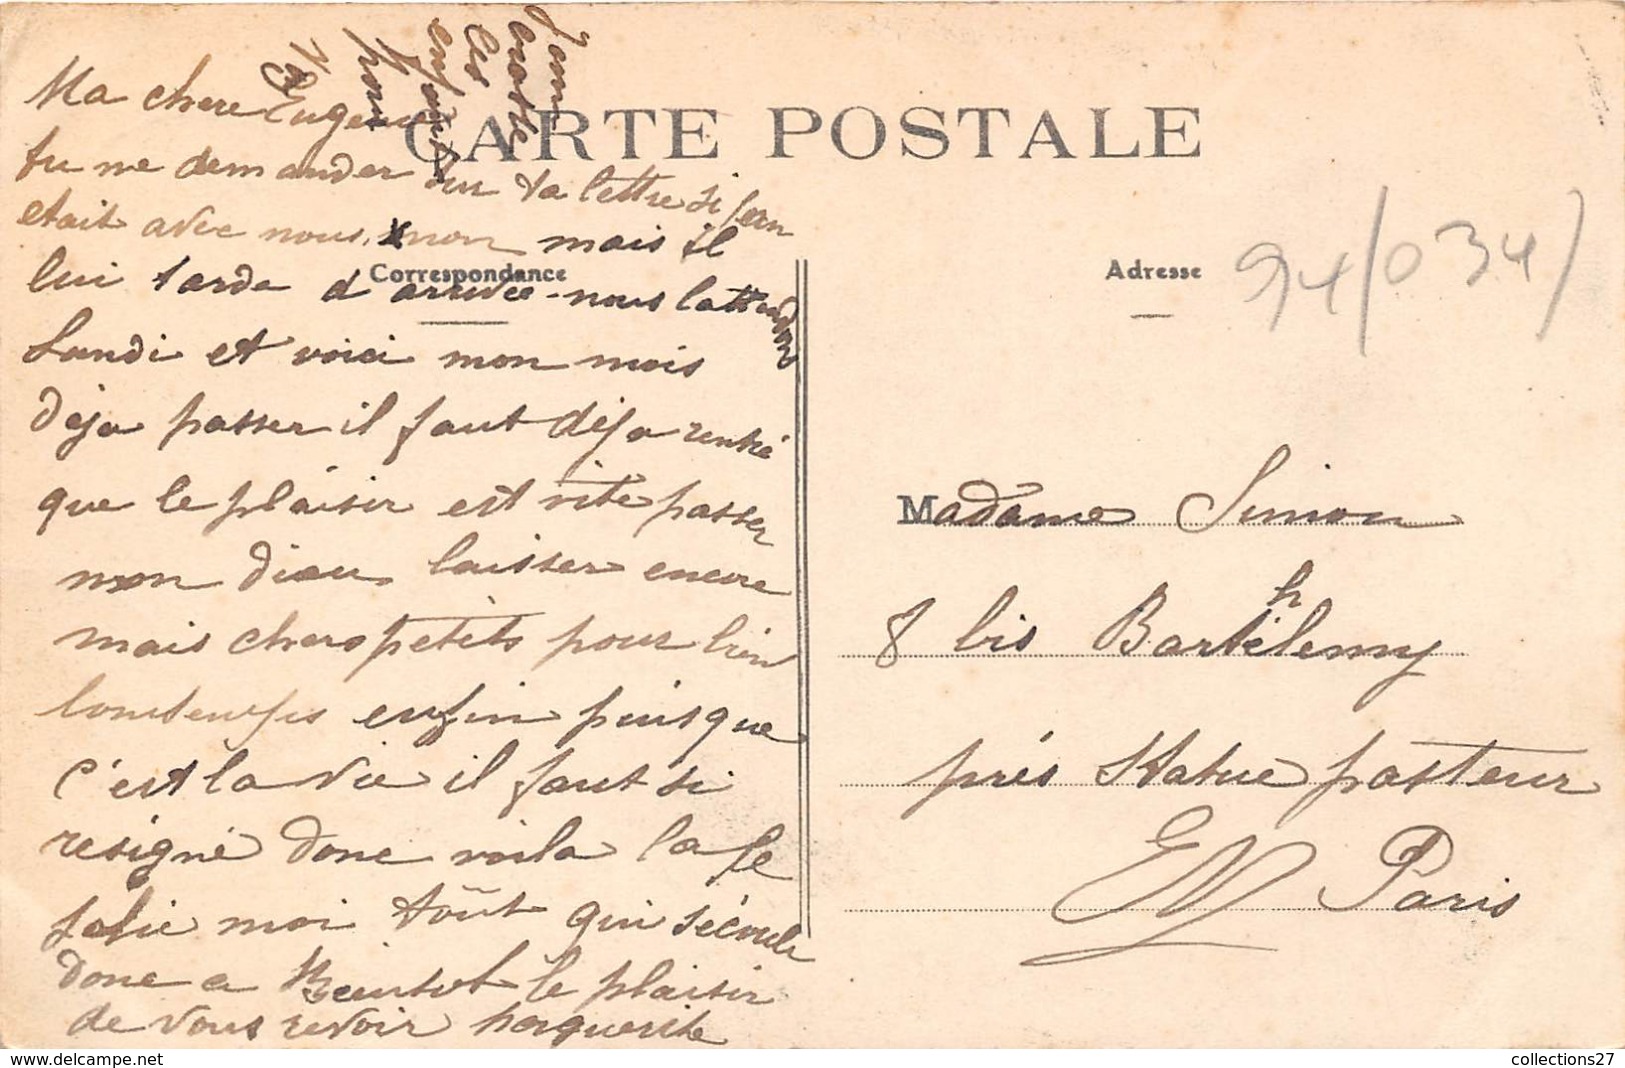 CARTE POSTALE
Correspondance
Adresse
94/034)
Jean
embrasse
les
enfants
pour
Ma chere Eugenie
tu me demander sur ta lettre si jean
etait avec nous. non mais il
lui tarde d'arrivée nous lattendons
Lundi et voici mon mois
deja passer il faut déja rentré
que le plaisir est vite passer
mon dieu laisser encore
mais chers petits pour bien
lontemps enfin puisque
c'est la vie il faut si
resigné donc voila la fe
folie moi tout qui sécoule
donc a Bientot le plaisir
de vous revoir Marguerite
Madame Simon
8 bis Barthélemy
prés Statue pasteur
EV Paris
collections27